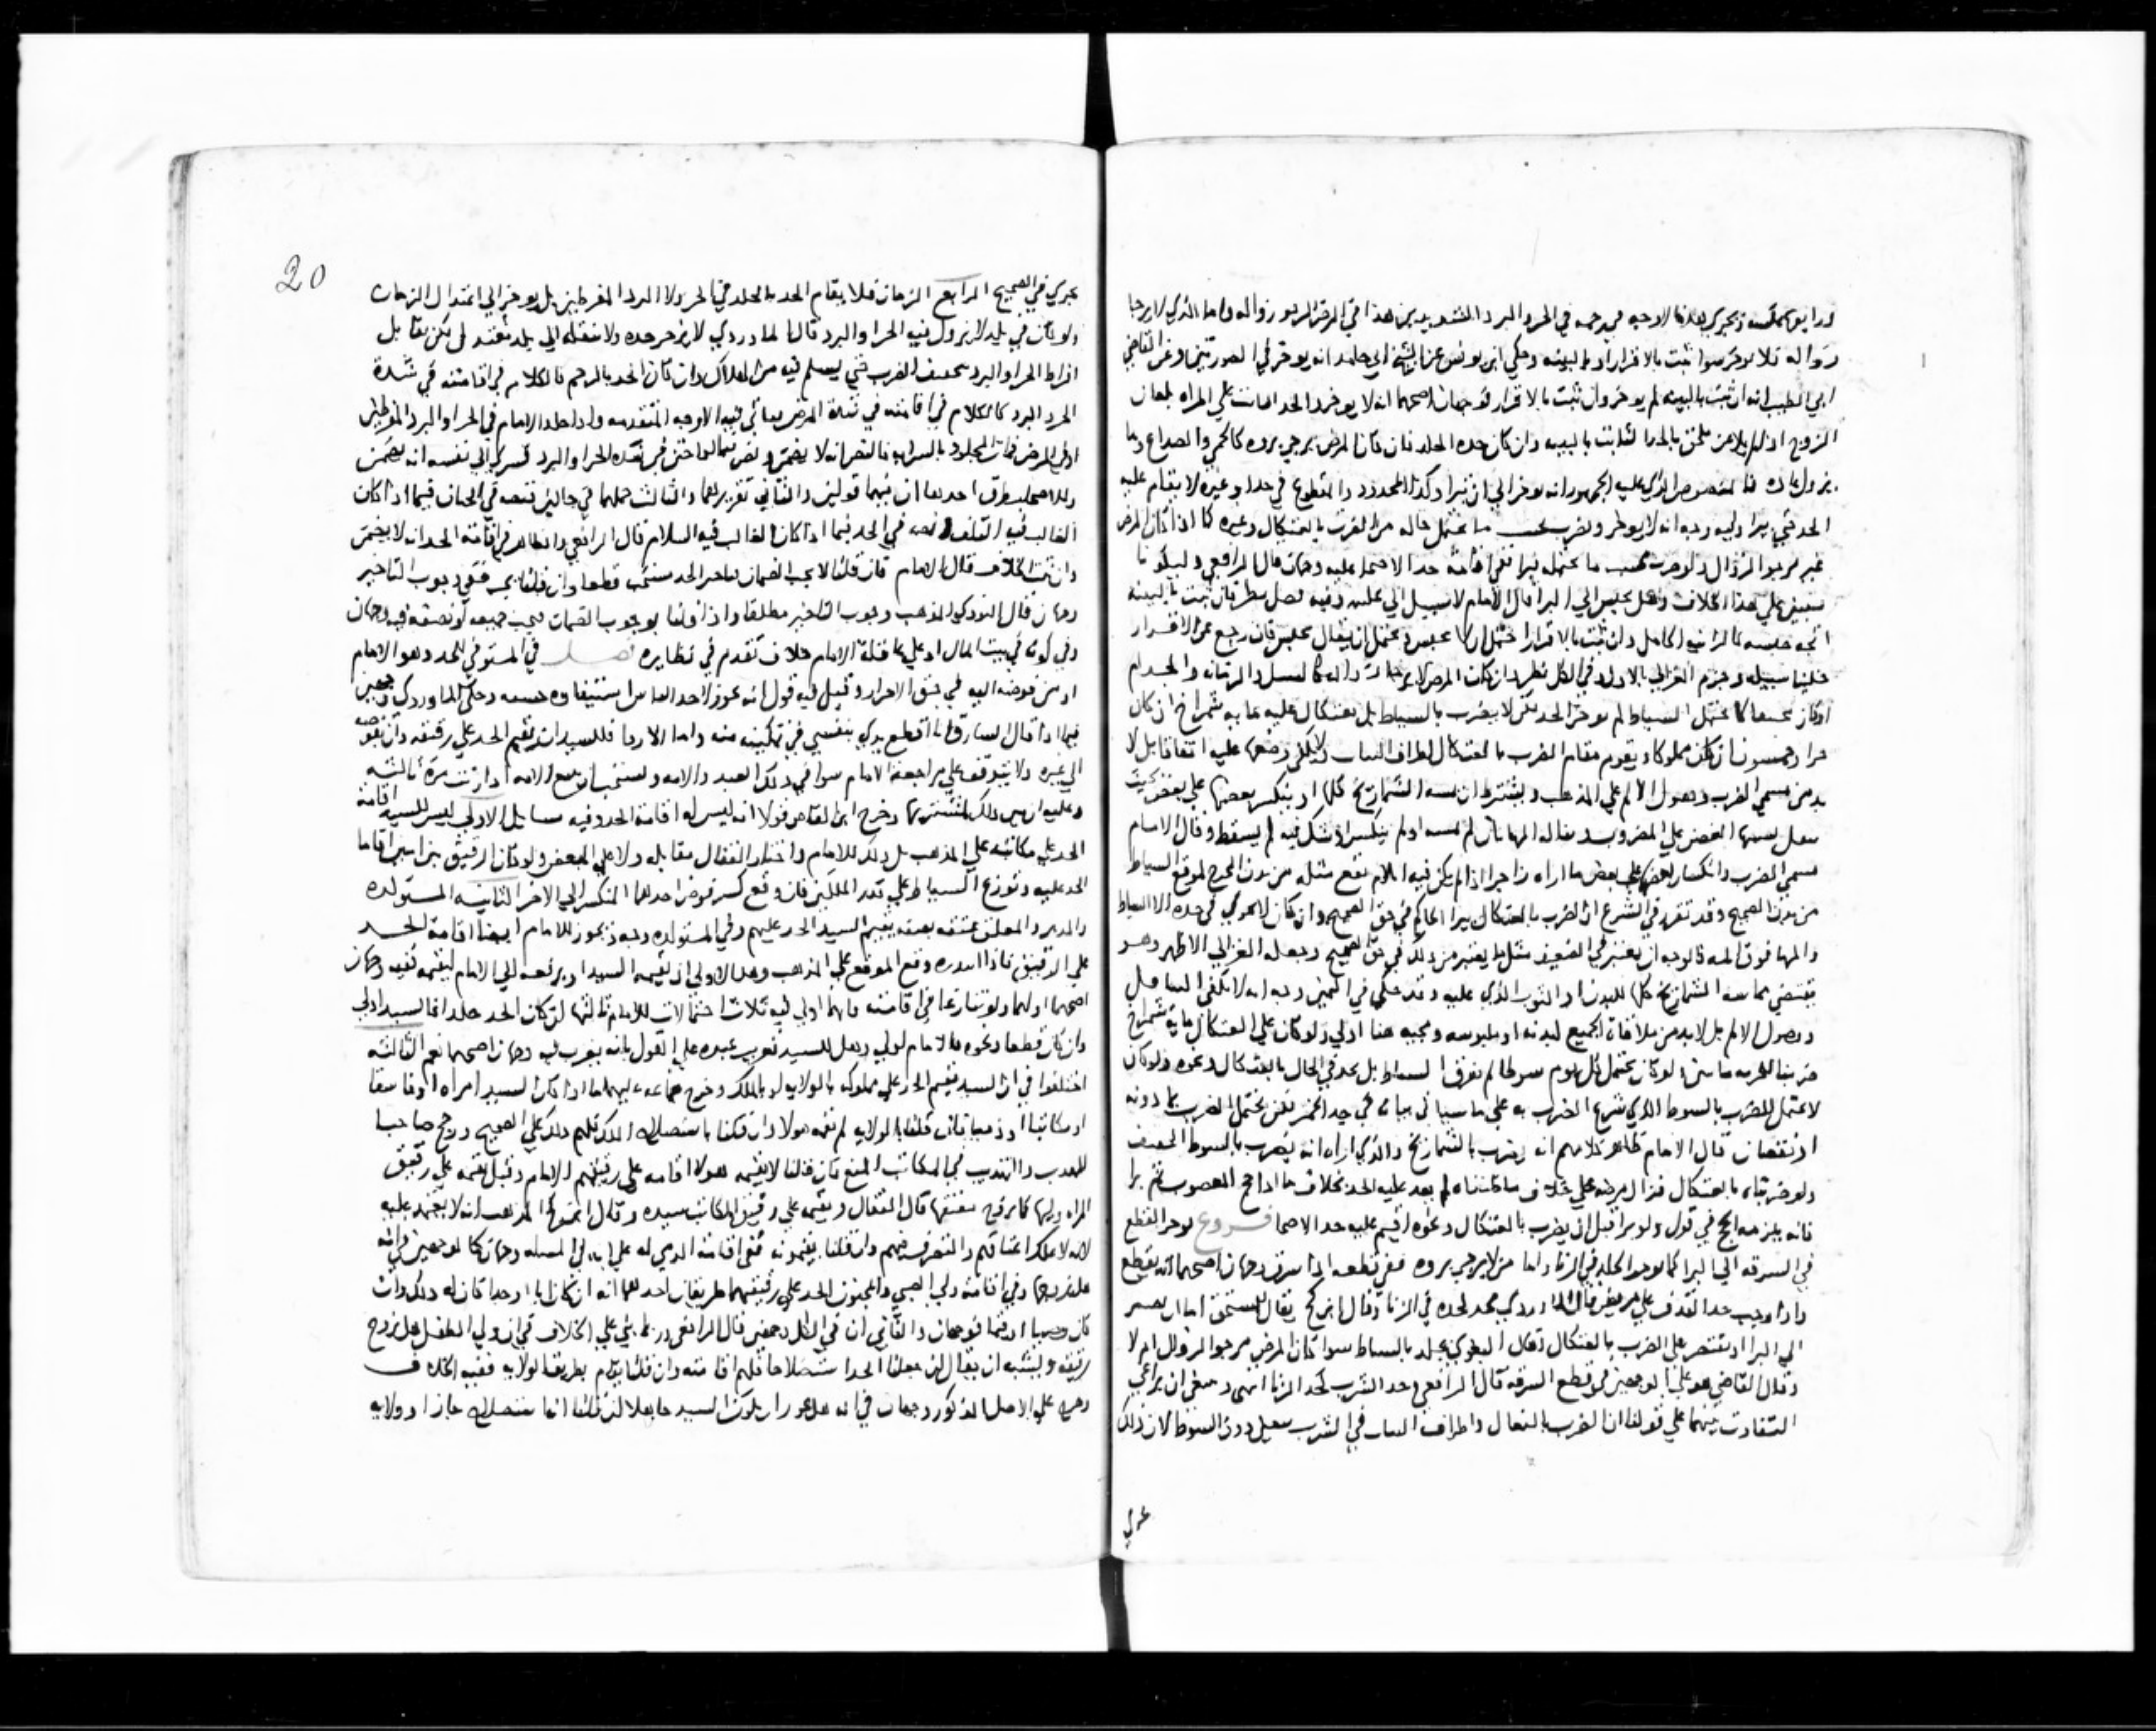 ورابع عكسه وتجري هذه الاوجه في رجمه في الحر والبرد الشديدين هذا في المرض المرجو زواله واما الذي لا يرجا
زواله فلا يوخر سوا ثبت بالاقرار او بالبينه وحكي ابن يونس عن الشيخ ابي حامد انه يوخر في الصورتين وعن القاضي
ابي الطيب انه ان ثبت بالبينه لم يوخر وان ثبت بالاقرار فوجهان اصحهما انه لا يوخر الحد الثابت علي المراه بلعان
الزوج اذا لم يلاعن ملحق بالحد الثابت بالبينه وان كان حده الجلد فان كان المرض يرجي بروه كالحمي والصداع وما
يزول فالمنصوص الذي عليه الجمهور انه يوخر الي ان يبرا وكذا المحدود والمقطوع في حد او غيره لا يقام عليه
الحد حتي يبرا وفيه وجه انه لا يوخر ويضرب بحسب ما يحتمل حاله من الضرب بالعثكال وغيره كما اذا كان المرض
غير مرجو الزوال ولو ضرب بحسب ما يحتمله ثم برا ففي اقامة حد الاصحا عليه وجهان قال الرافعي
علي هذا الخلاف وهل يحبس الي البرا قال الامام لا سبيل الي حبسه وفيه فصل نظر فان ثبت بالبينه
اتجه حبسه كالزانيه الحامل وان ثبت بالاقرار احتمل ان لا يحبس ويحتمل ان يقال يحبس فان رجع عن الاقرار
خلينا سبيله وجزم الغزالي بالاول في الكل وان كان المرض لا يرجا زواله كالسل والزمانه والجذام
او كان ضعيفا لا يحتمل السياط لم يوخر الحد لكن لا يضرب بالسياط بل بعثكال عليه مايه شمراخ ان كان
حرا وخمسون ان كان مملوكا ويقوم مقام الضرب بالعثكال اطراف الثياب ولا يكفي وضعها عليه اتفاقا بل لا
بد من مسمي الضرب وحصول الالم علي المذهب ويشترط ان تمسه الشماريخ كلها او ينكبس بعضها علي بعض بحيث
ينال بسببها البعض علي المضروب فان لم تمسه او لم ينكبس او شك فيه لم يسقط وقال الامام
مسمي الضرب وانكباس بعضها علي بعض ما اراه زاجرا اذا لم يكن فيه ايلام يقع مثله من بدن المحدود موقع السياط
من بدن الصحيح وقد تقرر في الشرع ان الضرب بالعثكال في حق الصحيح وان كان لا يجزي في حده الا السياط
فالوجه ان يعتبر في الضعيف مثل ما يعتبر من ذلك في حق الصحيح وجعله الغزالي الاظهر وهو
يقتضي مماسة الشماريخ كلها للبدن او الثوب الذي عليه وقد حكي في اليمين وجه انه لا يكفي التثاقل
ووصول الالم بل لا بد من ملاقاة الجميع لبدنه او ملبوسه ومجيه هنا اولي ولو كان علي العثكال مايه شمراخ
ضربنا الحر به ما سبق لو كان يحتمل كل يوم سوطا لم نفرق السياط بل يحد في الحال بالعثكال ونحوه ولو كان
لا يحتمل الضرب بالسوط الذي شرع الضرب به علي ما سياتي بيانه في حد الخمر لكن يحتمل الضرب بما دونه
قال الامام ظاهر كلامهم انه يضرب بالشماريخ والذي اراه انه يضرب بالسوط الخفيف
ولو ضربناه بالعثكال فزال مرضه علي خلاف ما ظنناه لم يعد عليه الحد بخلاف ما اذا حج المعضوب ثم برا
فانه يلزمه الحج في قول ولو برا قبل ان يضرب بالعثكال ونحوه اقيم عليه حد الاصحا فروع يوخر القطع
في السرقه الي البرا كما يوخر الجلد في الزنا واما من لا يرجي بروه ففي قطعه اذا سرق وجهان اصحهما انه يقطع
واذا وجب حد القذف علي مريض قال الماوردي محمد لحده في الزنا وقال ابن كج يقال للمستحق اما ان يصبر
الي البرا او يقتصر علي الضرب بالعثكال وقال البغوي يجلد بالسياط سوا كان المرض مرجو الزوال ام لا
وقال القاضي هو علي الوجهين في قطع السرقه قال الرافعي وحد الشرب كحد الزنا انتهي وينبغي ان يراعي
التفاوت بينهما علي قولنا ان الضرب بالنعال واطراف الثياب في الشرب دون السوط لان ذلك
يجزي
20
يجزي في الصحيح الرابع الزمان فلا يقام الحد بالجلد في الحر ولا البرد المفرطين بل يوخر الي اعتدال الزمان
ولو كان في بلد لا يزول فيه الحر او البرد قال الماوردي لا يوخر حده ولا ينقله الي بلد معتدل لكن يقابل
افراط الحر او البرد بتخفيف الضرب حتي يسلم فيه من الهلاك وان كان الحد بالرجم فالكلام في اقامته في شدة
الحر والبرد كالكلام في اقامته في المرض ياتي فيه الاوجه المتقدمه واذا جلد الامام في الحر او البرد المفرطين
او في المرض فمات المجلود بالسرايه فالنص انه لا يضمن ونص فيما لو ختن في شدة الحر او البرد فسري الي نفسه انه يضمن
وللاصحاب طرق احدها ان فيهما قولين والثاني تقريرهما والثالث حملهما علي حالين فنصه في الختان فيما اذا كان
الغالب فيه التلف ونصه في الحد فيما اذا كان الغالب فيه السلام قال الرافعي والظاهر في اقامة الحد انه لا يضمن
وان ثبت الخلاف قال الامام فان قلنا لا يجب الضمان فتاخير الحد مستحب قطعا وان قلنا يجب ففي وجوب التاخير
وجهان قال النووي المذهب وجوب التاخير مطلقا واذا قلنا بوجوب الضمان فيجب جميعه او نصفه فيه وجهان
وفي كونه في بيت المال او علي عاقلة الامام خلاف تقدم في نظايره فصل في المستوفي للحد وهو الامام
او من فوضه اليه في حق الاحرار وقيل فيه قول انه يجوز لاحد الناس استيفاوه حسبه وحكي الماوردي وجهين
فيما اذا قال السارق انا اقطع يدي بنفسي في تمكينه منه واما الارقا فللسيد ان يقيم الحد علي رقيقه وان يفوضه
الي غيره ولا يتوقف علي مراجعة الامام سوا في ذلك العبد والامه ويستحب ان يبيع الامه اذا زنت مرة ثالثه
وعليه ان يبين ذلك لمشتريها وخرج ابن القاص قولا انه ليس له اقامة الحد وفيه مسايل الاولي ليس للسيد اقامة
الحد علي مكاتبه علي المذهب بل ذلك للامام واختار القفال مقابله ولا علي المبعض ولو كان الرقيق بين اثنين اقاما
الحد عليه وتوزع السياط علي قدر الملكين فان وقع كسر فوض احدهما المنكسر الي الاخر الثانيه المستولده
والمدبر والمعلق عتقه بصفه يقيم السيد الحد عليهم وفي المستولده وجه ويجوز للامام ايضا اقامة الحد
علي الرقيق فاذا ابتدره وقع الموقع علي المذهب وهل الاولي ان يقيمه السيد او يرفعه الي الامام ليقيمه فيه وجهان
اصحهما اولهما ولو تنازعا في اقامته فايهما اولي فيه ثلاث احتمالات للامام ثالثها ان كان الحد جلدا فالسيد اولي
وان كان قطعا ونحوه فالامام اولي وهل للسيد تغريب عبده علي القول بانه يغرب فيه وجهان اصحهما نعم الثالثه
اختلفوا في ان السيد يقيم الحد علي مملوكه بالولايه او بالملك وخرج جماعه عليهما ما اذا كان السيد امراه او فاسقا
او مكاتبا او ذميا فان قلنا بالولايه لم يقمه هولا وان قلنا باستصلاح الملك فلهم ذلك علي الصحيح ورجح صاحبا
المهذب والتهذيب في المكاتب المنع فان قلنا لا يقيمه هولا اقامه علي رقيقهم الامام وقيل يقيمه علي رقيق
المراه وليها كما يزوج معتقها قال القفال ويقيمه علي رقيق المكاتب سيده وقال الشيخ المذهب انه لا يقيمه عليه
لانه لا يملك اعتاقهم والتصرف فيهم وان قلنا يقيمونه ففي اقامة الذمي له علي المسلم وجهان كالوجهين في انه
هل يزوجها وفي اقامة ولي الصبي والمجنون الحد علي رقيقهما طريقان احدهما انه ان كان ابا او جدا كان له ذلك وان
كان وصيا او قيما فوجهان والثاني ان في الكل وجهين قال الرافعي وربما بني علي الخلاف في ان ولي الطفل هل يزوج
رقيقه ويشبه ان يقال ان جعلنا الحد استصلاحا فلهم اقامته وان قلنا يقام بطريق الولايه ففيه الخلاف
وخرج علي الاصل المذكور وجهان في انه هل يجوز ان يكون السيد جاهلا ان قلنا انها استصلاح جاز او ولايه